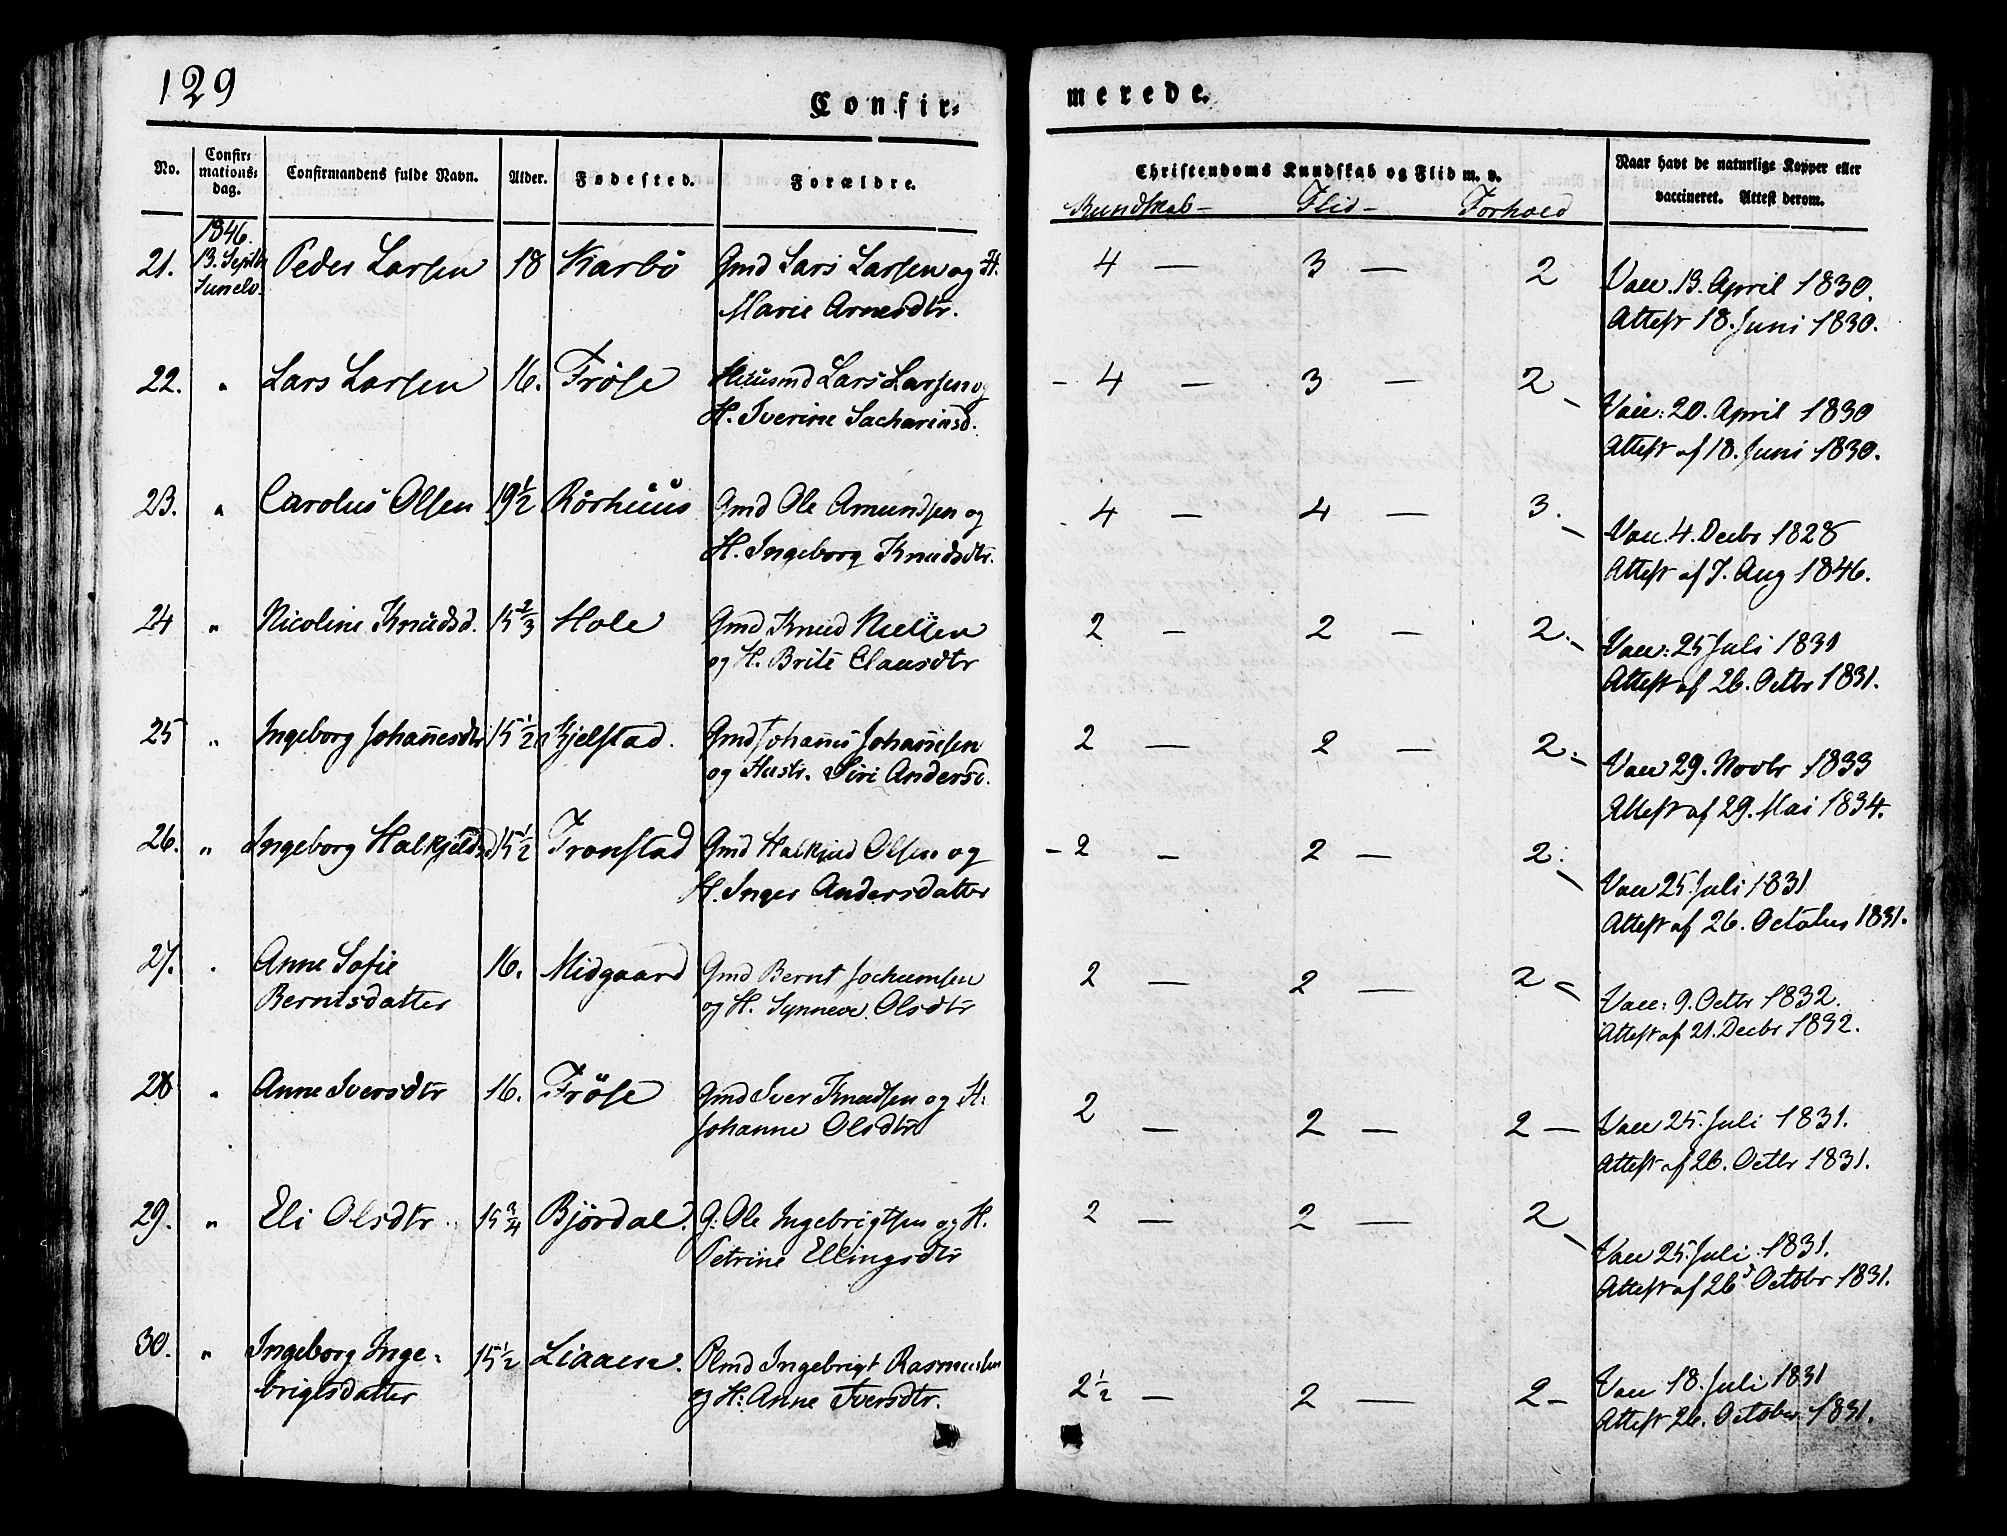 129
Confir-
merede.
No.
Confir-
mations-
dag.
Confirmandens fulde Navn.
Alder.
Fødested.
Forældre.
Christendoms Kundskab og Flid m. v.
Naar havt de naturlige Kopper eller
vaccineret. Attest derom.
Kundskab -
Flid -
Forhold
1846.
21. 13. Septbr Peder Larsen 18 Karbö Gmd Lars Larsen og H. 4 — 3 — 2 Vacc. 13. April 1830.
Marie Arnesdtr. Attest 18. Juni 1830.
22. " Lars Larsen 16. Fröse Huusmd Lars Larsen og - 4 — 3 — 2 - Vacc: 20. April 1830
H. Iverine Sachariasd. Attest af 18. Juni 1830.
23. " Carolus Olsen 19½ Rörhuus Gmd Ole Amundsen og 4 — 4 — 3. - Vacc. 4. Decbr 1828
H. Ingeborg Knudsdtr. Attest af 7. Aug 1846.
24 " Nicoline Knudsd. 15⅔ Hole Gmd Knud Nielsen 2 — 2 — 2. - Vacc: 25 Juli 1831
og H. Brite Clausdtr Attest af 26. Octbr 1831.
25 " Ingeborg Johannesdtr 15½ Kjelstad. Gmd Johannes Johannesen 2 — 2 — 2 - Vacc 29. Novbr 1833
og Hustr. Siri Andersd. Attest af 29. Mai 1834.
26. " Ingeborg Halkjeldsd 15½ Tronstad Gmd Halkjeld Olsen og - 2 — 2 — 2. - Vacc 25. Juli 1831
H. Inger Andersdatter Attest af 26. October 1831.
27. " Anne Sofie 16. Midgaard Gmd Bernt Jochumsen 2 — 2 — 2 - Vacc: 9. Octbr 1832.
Berntsdatter og H. Synneve Olsdtr Attest af 21. Decbr 1832.
28 " Anne Iversdtr 16. Fröse Gmd Iver Knudsen og H: 2 — 2 — 2 — Vacc 25. Juli 1831.
Johanne Olsdtr Attest af 26. Octbr 1831.
29. " Eli Olsdtr 15¾ Bjørdal. G: Ole Ingebrigtsen og H. 2 — 2 — 2 - Vacc 25. Juli 1831.
Petrine Ellingsdtr Attest af 26 Octobr 1831.
30. " Ingeborg Inge- 15½ Liaaen. Plmd Ingebrigt Rasmussen 2½ — 2 — 2 - Vacc 18. Juli 1831
brigtsdatter og H: Anne Iversdtr. Attest 26. October 1831.